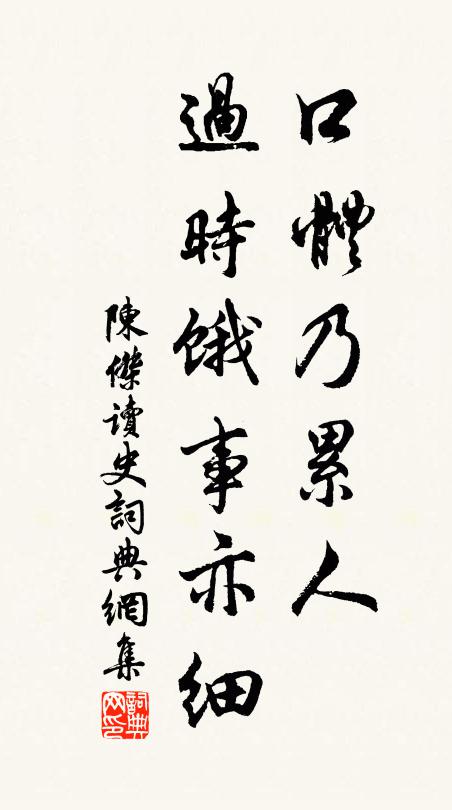 口體乃累人
過時餓事亦細
陳傑讀史詞典網集
詞典網印